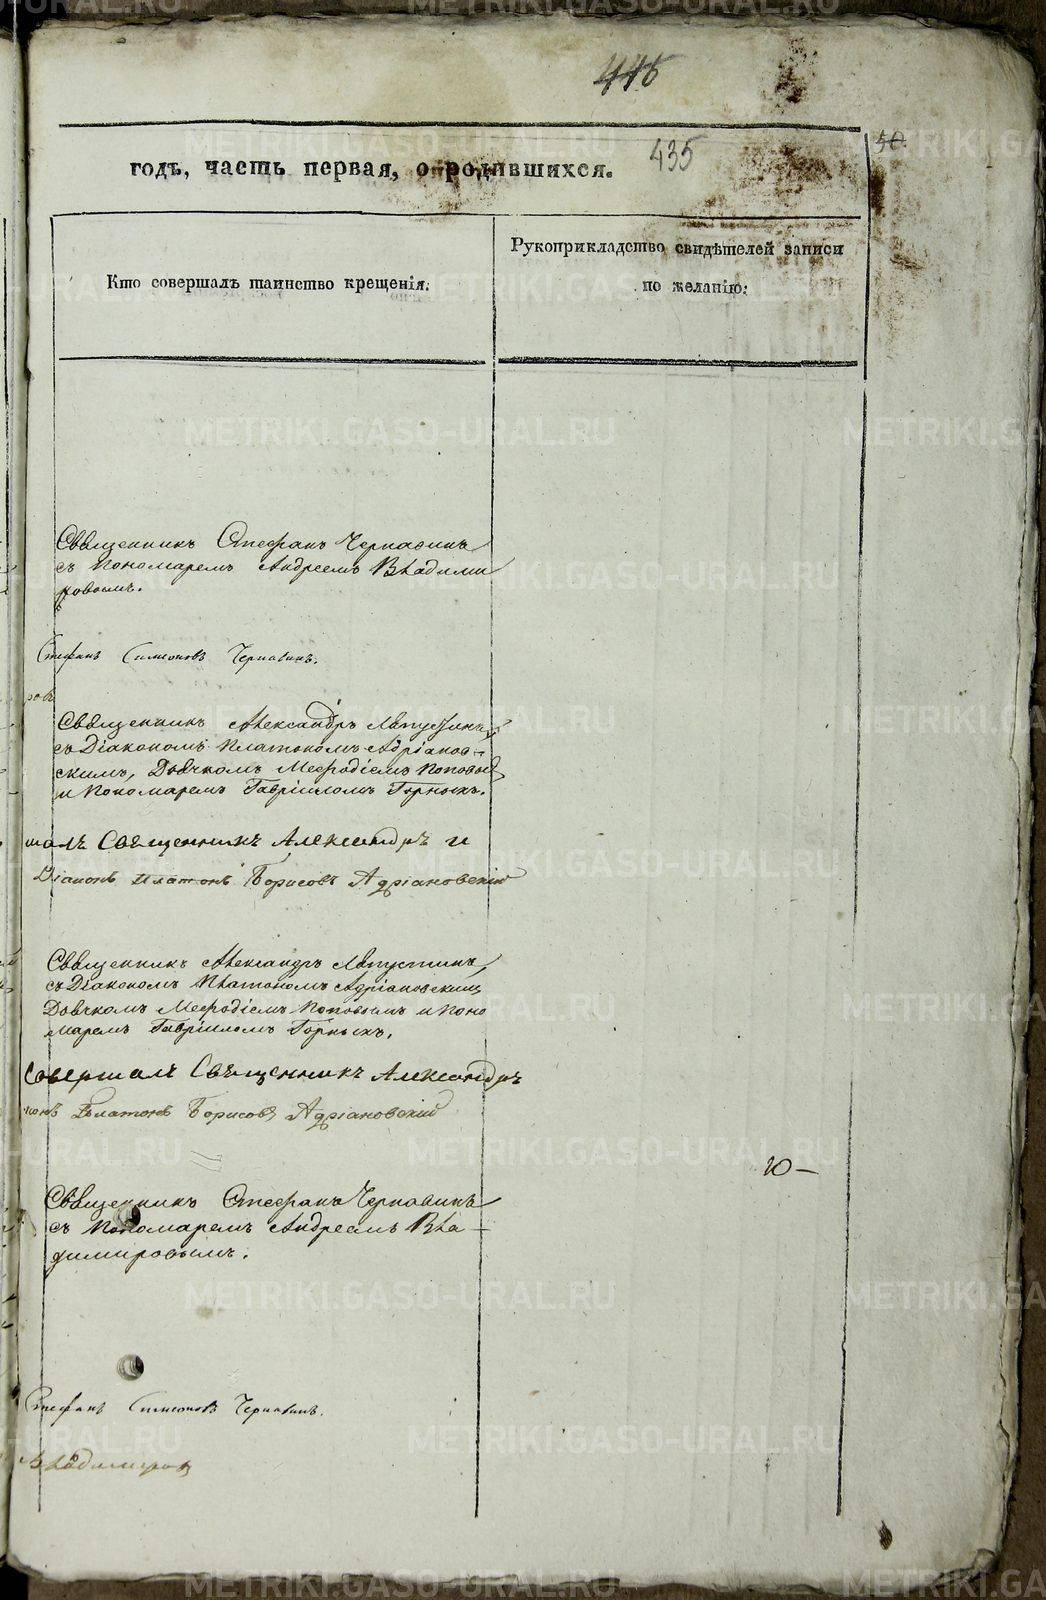 445
50.
годъ, часть первая, о родившихся.
435
Кто совершалъ таинство крещенія.
Рукоприкладство свидѣтелей записи
по желанію:
Священникъ Стефанъ Чернавинъ
съ Пономаремъ Андреемъ Владими
ровымъ.
Стефанъ Симеоновъ Чернавинъ.
ровъ
Священникъ Александръ
съ Діакономъ Платономъ Адріанов-
скимъ, Дьячкомъ Меѳодіемъ Поповымъ
и Пономаремъ Гавріиломъ Горныхъ.
шалъ Священникъ Александръ и
Діаконъ Платонъ Борисовъ Адріановскій
Священникъ Александръ
съ Діакономъ Платономъ Адріановскимъ
Дьячкомъ Меѳодіемъ Поповымъ и Поно
маремъ Гавріиломъ Горныхъ.
Совершалъ Священникъ Александръ
конъ Платонъ Борисовъ Адріановскій
10 —
Священникъ Стефанъ Чернавинъ
съ Пономаремъ Андреемъ Вла-
димировымъ.
Стефанъ Симеоновъ Чернавинъ.
Владимировъ
METRIKI.GASO-URAL.RU